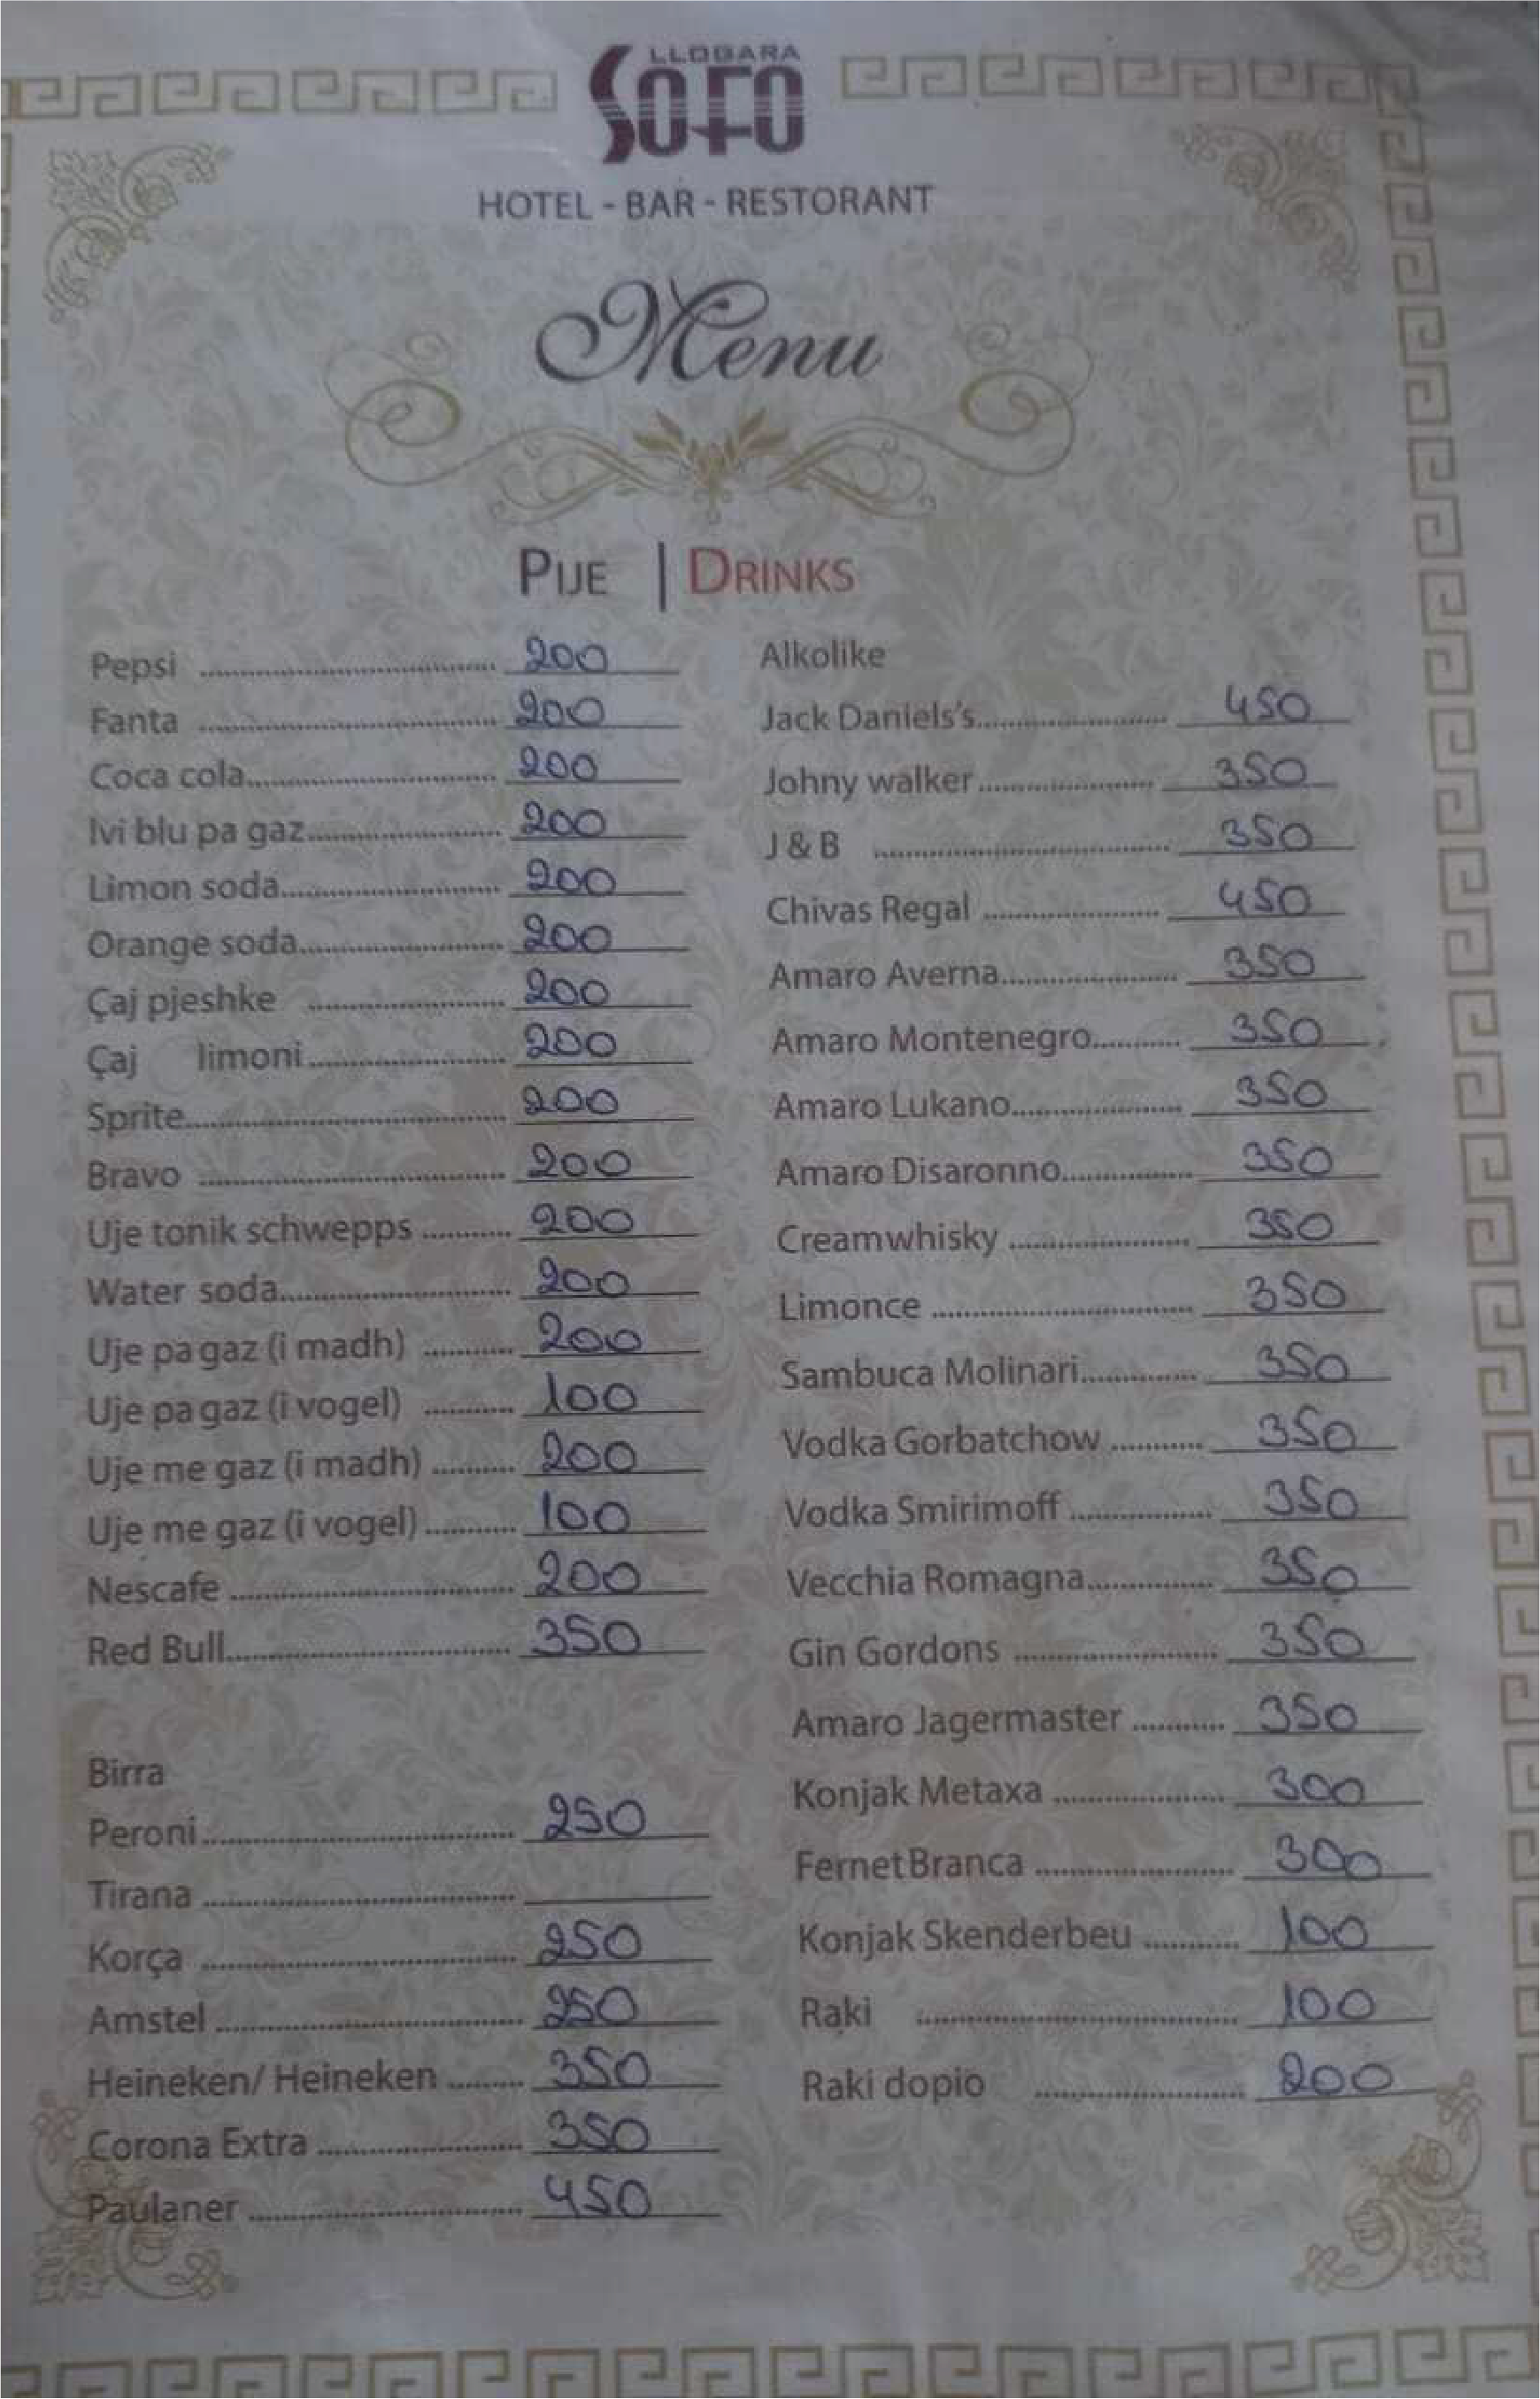 LLOGARA
SOFO
HOTEL - BAR - RESTORANT
Menu
PIJE | DRINKS
Pepsi ........ 200
Fanta ........ 200
Coca cola........ 200
Ivi blu pa gaz........ 200
Limon soda........ 200
Orange soda........ 200
Çaj pjeshke ........ 200
Çaj limoni........ 200
Sprite........ 200
Bravo ........ 200
Uje tonik schwepps ........ 200
Water soda........ 200
Uje pa gaz (i madh) ........ 200
Uje pa gaz (i vogel) ........ 100
Uje me gaz (i madh) ........ 200
Uje me gaz (i vogel) ........ 100
Nescafe ........ 200
Red Bull........ 350
Birra
Peroni ........ 250
Tirana ........
Korça ........ 250
Amstel ........ 250
Heineken/ Heineken ........ 350
Corona Extra ........ 350
Paulaner ........ 450
Alkolike
Jack Daniels's........ 450
Johny walker ........ 350
J & B ........ 350
Chivas Regal ........ 450
Amaro Averna........ 350
Amaro Montenegro........ 350
Amaro Lukano........ 350
Amaro Disaronno........ 350
Creamwhisky ........ 350
Limonce ........ 350
Sambuca Molinari........ 350
Vodka Gorbatchow ........ 350
Vodka Smirimoff ........ 350
Vecchia Romagna........ 350
Gin Gordons ........ 350
Amaro Jagermaster ........ 350
Konjak Metaxa ........ 300
Fernet Branca ........ 300
Konjak Skenderbeu ........ 100
Raki ........ 100
Raki dopio ........ 200